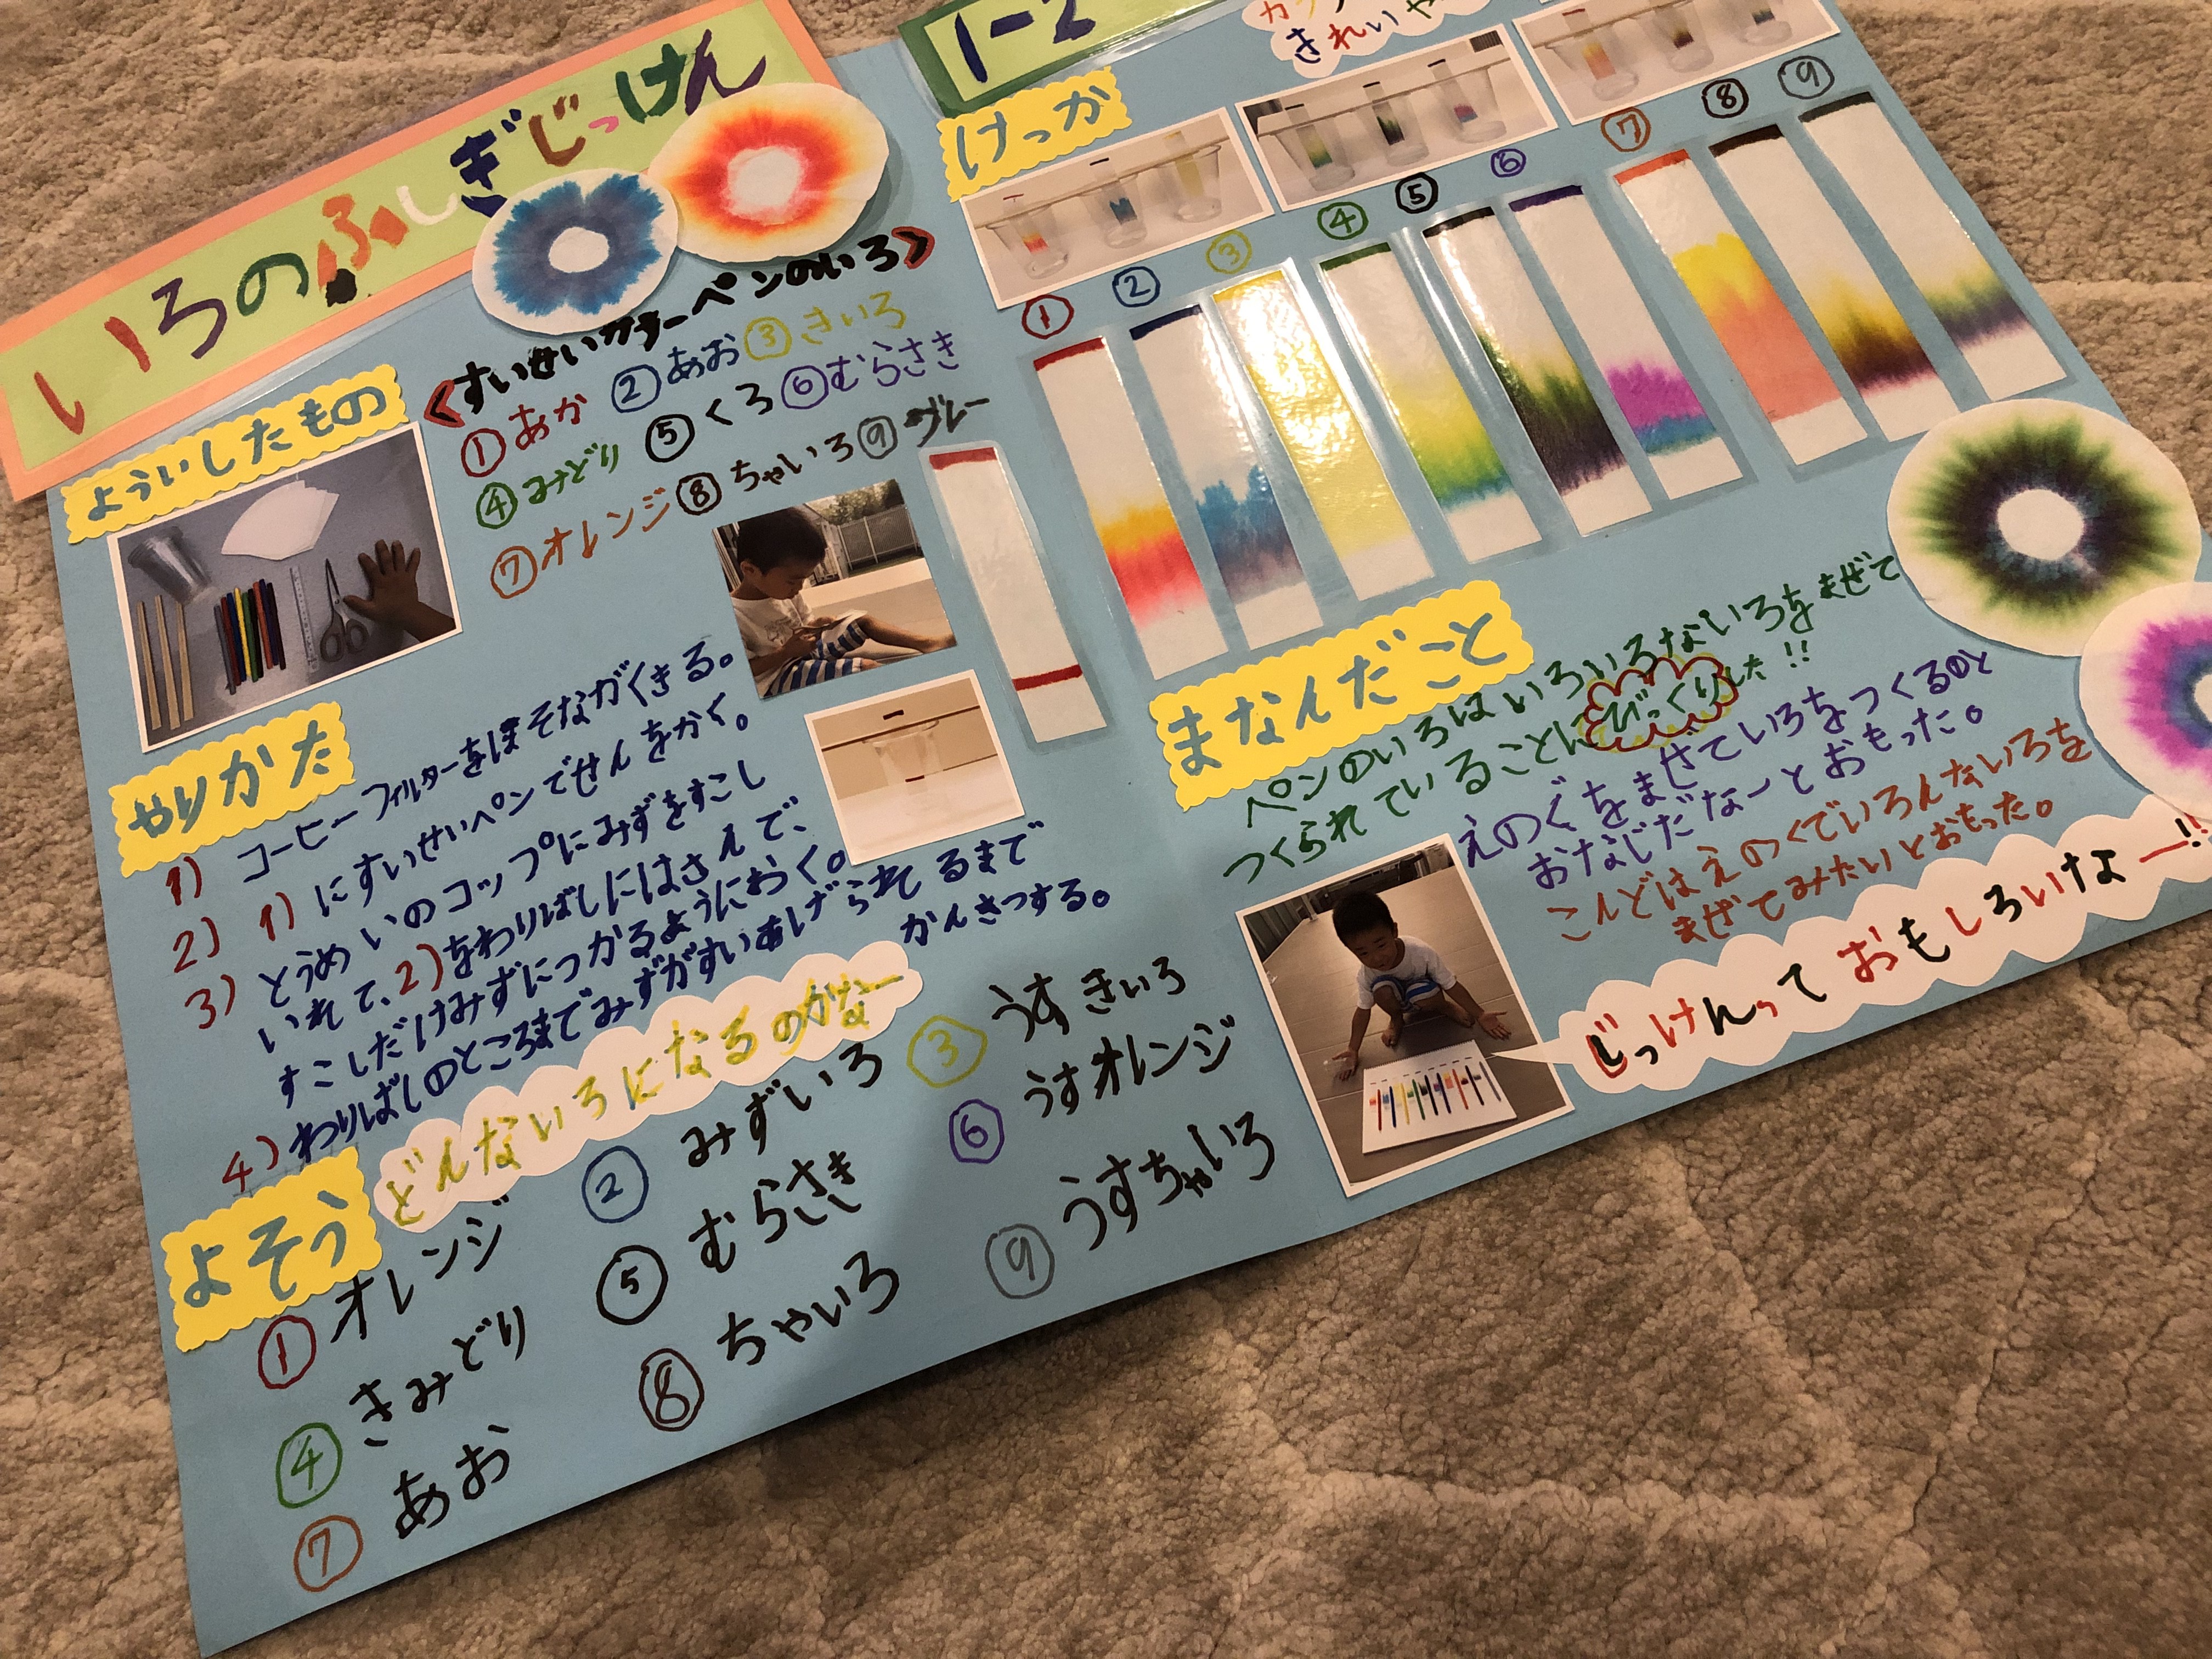 いろのふしぎじっけん
よういしたもの
《すいせいカラーペンのいろ》
①あか ②あお ③きいろ
④みどり ⑤くろ ⑥むらさき
⑦オレンジ ⑧ちゃいろ ⑨グレー
やりかた
1) コーヒーフィルターをほそながくきる。
2) 1)にすいせいペンでせんをかく。
3) とうめいのコップにみずをすこし
いれて、2)をわりばしにはさんで、
すこしだけみずにつかるようにおく。
4) わりばしのところまでみずがすいあげられるまで
かんさつする。
よそう
どんないろになるのかなー
① オレンジ ② みずいろ ③ うすきいろ
④ きみどり ⑤ むらさき ⑥ うすオレンジ
⑦ あお ⑧ ちゃいろ ⑨ うすちゃいろ
1-2
きれい
けっか
① ② ③ ④ ⑤ ⑥ ⑦ ⑧ ⑨
まなんだこと
ペンのいろはいろいろないろをまぜて
つくられていることにびっくりした!!
えのぐをまぜていろをつくるのと
おなじだなーとおもった。
こんどはえのぐでいろんないろを
まぜてみたいとおもった。
じっけんって おもしろいなー!!